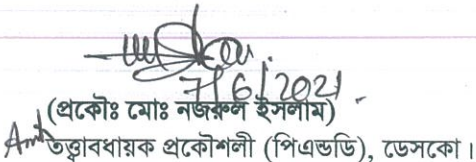 7/6/2021
(প্রকৌঃ মোঃ নজরুল ইসলাম)
তত্ত্বাবধায়ক প্রকৌশলী (পিএন্ডডি), ডেসকো।